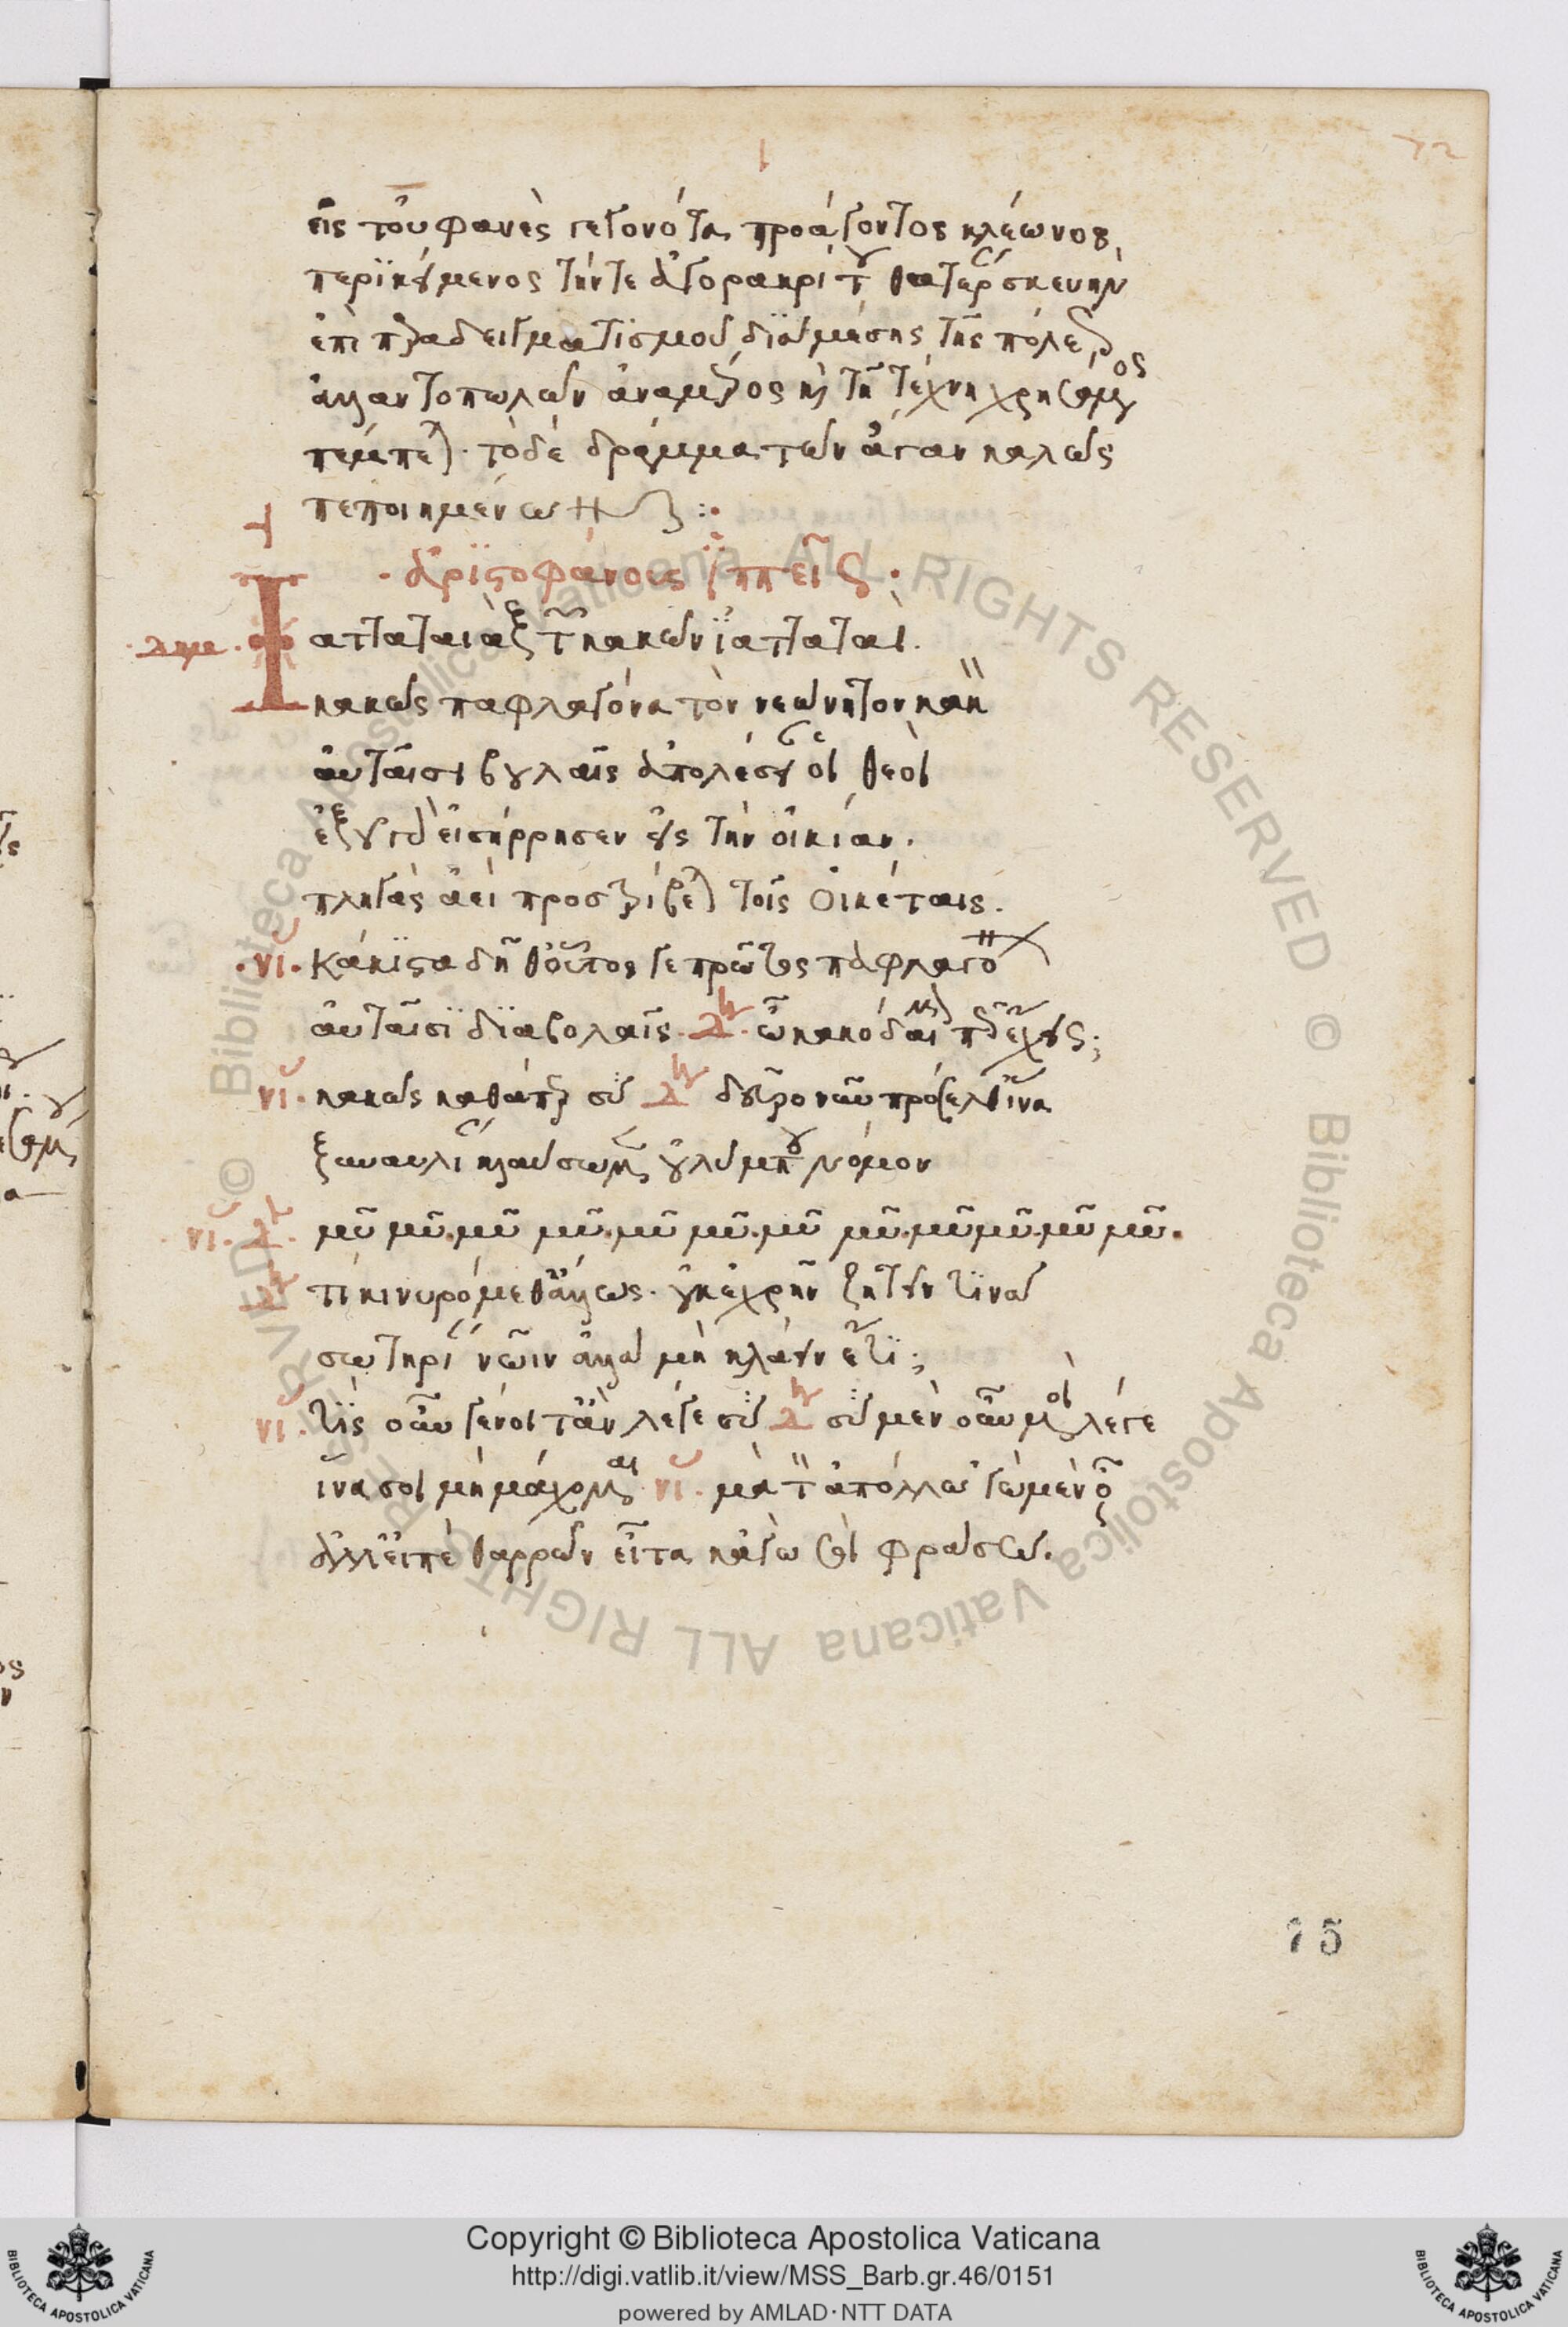 72
εἰς τοὐμφανὲς γεγονότα προάγοντος κλέωνος
περικείμενος τήν τε ἀγορακρίτου θατέρου σκευὴν
ἐπὶ παραδειγματισμοῦ διὰ μέσης τῆς πόλεως
ἀλλαντοπωλῶν ἀναμὶξ καὶ τῇ τέχνῃ χρησόμενος
πέμπεται· τὸ δὲ δρᾶμα τῶν ἄγαν καλῶς
πεποιημένων :·
· ἀριστοφάνους ἱππεῖς ·
· δημ · Ιατταταιὰξ τῶν κακῶν ἰατταταί.
κακῶς παφλαγόνα τὸν νεώνητον κακὸν
αὐταῖσι βουλαῖς ἀπολέσειαν οἱ θεοί
ἐξ οὗ γὰρ εἰσήρρησεν εἰς τὴν οἰκίαν.
πληγὰς ἀεὶ προστρίβεται τοῖς οἰκέταις.
· νι · κάκιστα δῆθ' οὗτός γε πρῶτος παφλαγόνων
αὐταῖσι διαβολαῖς. δη · ὦ κακόδαιμον πῶς ἔχεις;
νι · κακῶς καθάπερ σύ δη δεῦρο νῦν πρόσελθ' ἵνα
ξυναυλίαν κλαύσωμεν οὐλύμπου νόμον
νι · δη · μῦ μῦ· μῦ μῦ· μῦ μῦ· μῦ μῦ· μῦ μῦ· μῦ μῦ·
δη τί κινυρόμεθ' ἄλλως· οὐκ ἐχρῆν ζητεῖν τινὰ
σωτηρίαν νῶιν ἀλλὰ μὴ κλάειν ἔτι;
νι · τίς οὖν γένοιτ' ἂν λέγε σύ δη σὺ μὲν οὖν μοι λέγε
ἵνα σοι μὴ μάχωμαι νι · μὰ τὸν ἀπόλλω 'γὼ μὲν οὔ
ἀλλ' εἰπὲ θαρρῶν εἶτα κἀγὼ σοὶ φράσω.
75
Copyright © Biblioteca Apostolica Vaticana
http://digi.vatlib.it/view/MSS_Barb.gr.46/0151
powered by AMLAD·NTT DATA